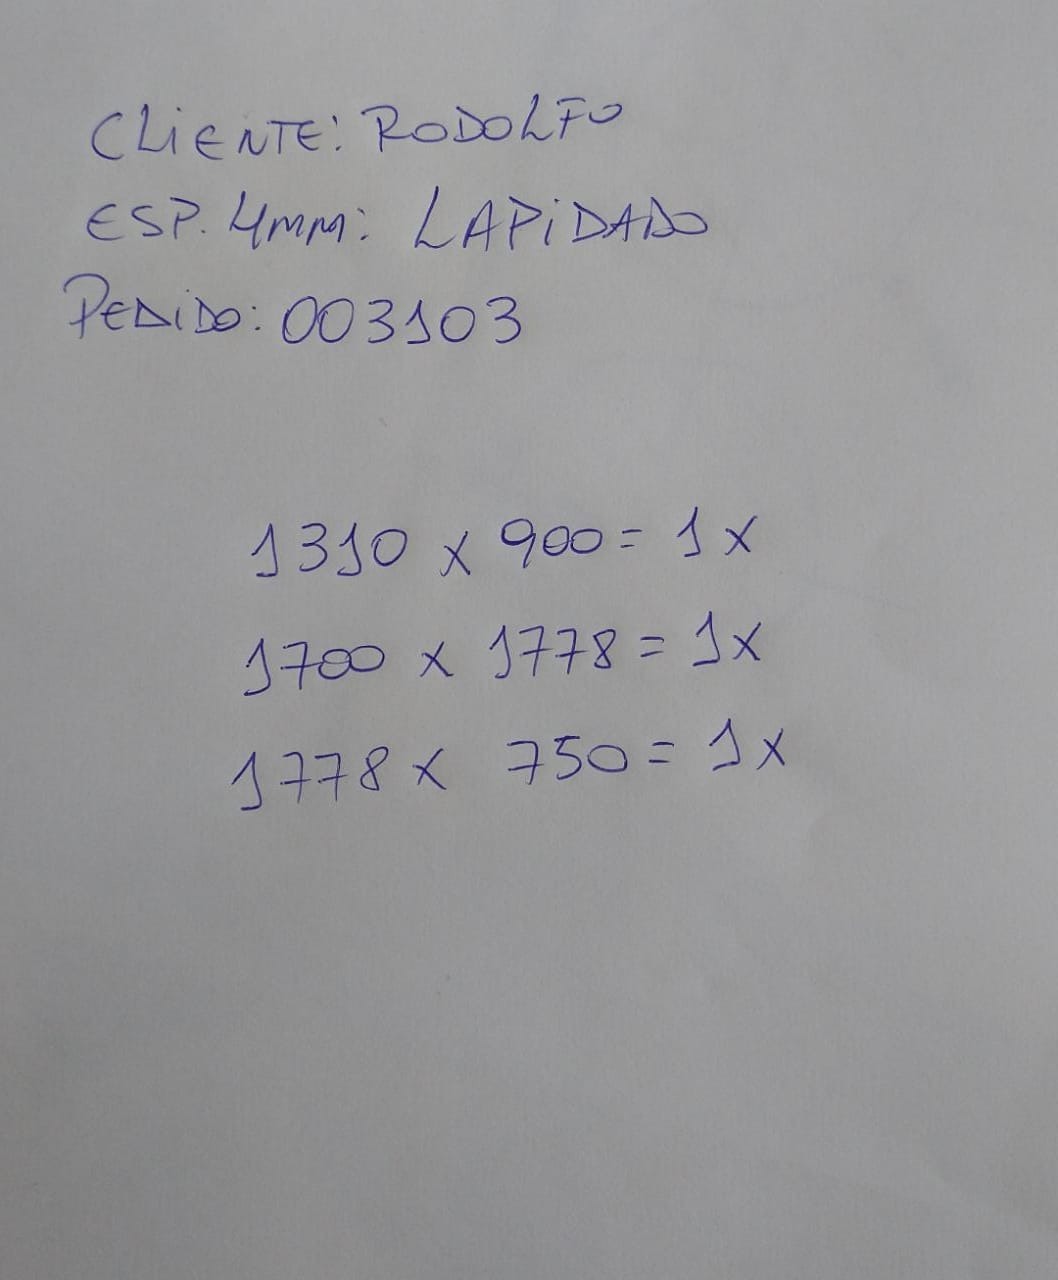 CLiENTE: RODOLFO
ESP. 4mm: LAPiDADO
PEDiDO: 003103
1310 x 900 = 1 x
1700 x 1778 = 1x
1778 x 750 = 1x